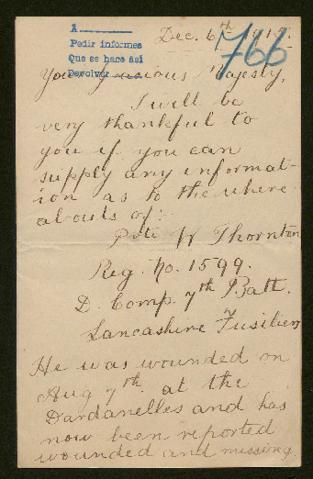 A
Pedir informes
Que se hace así
Devolver
Dec. 6th 1915.
766
Your Gracious Majesty,
I will be
very thankful to
you if you can
supply any informat-
ion as to the where
abouts of:
Pte W Thornton
Reg. No. 1599.
D. Comp 7th Batt.
Lancashire Fusiliers
He was wounded on
Aug 7th at the
Dardanelles and has
now been reported
wounded and missing